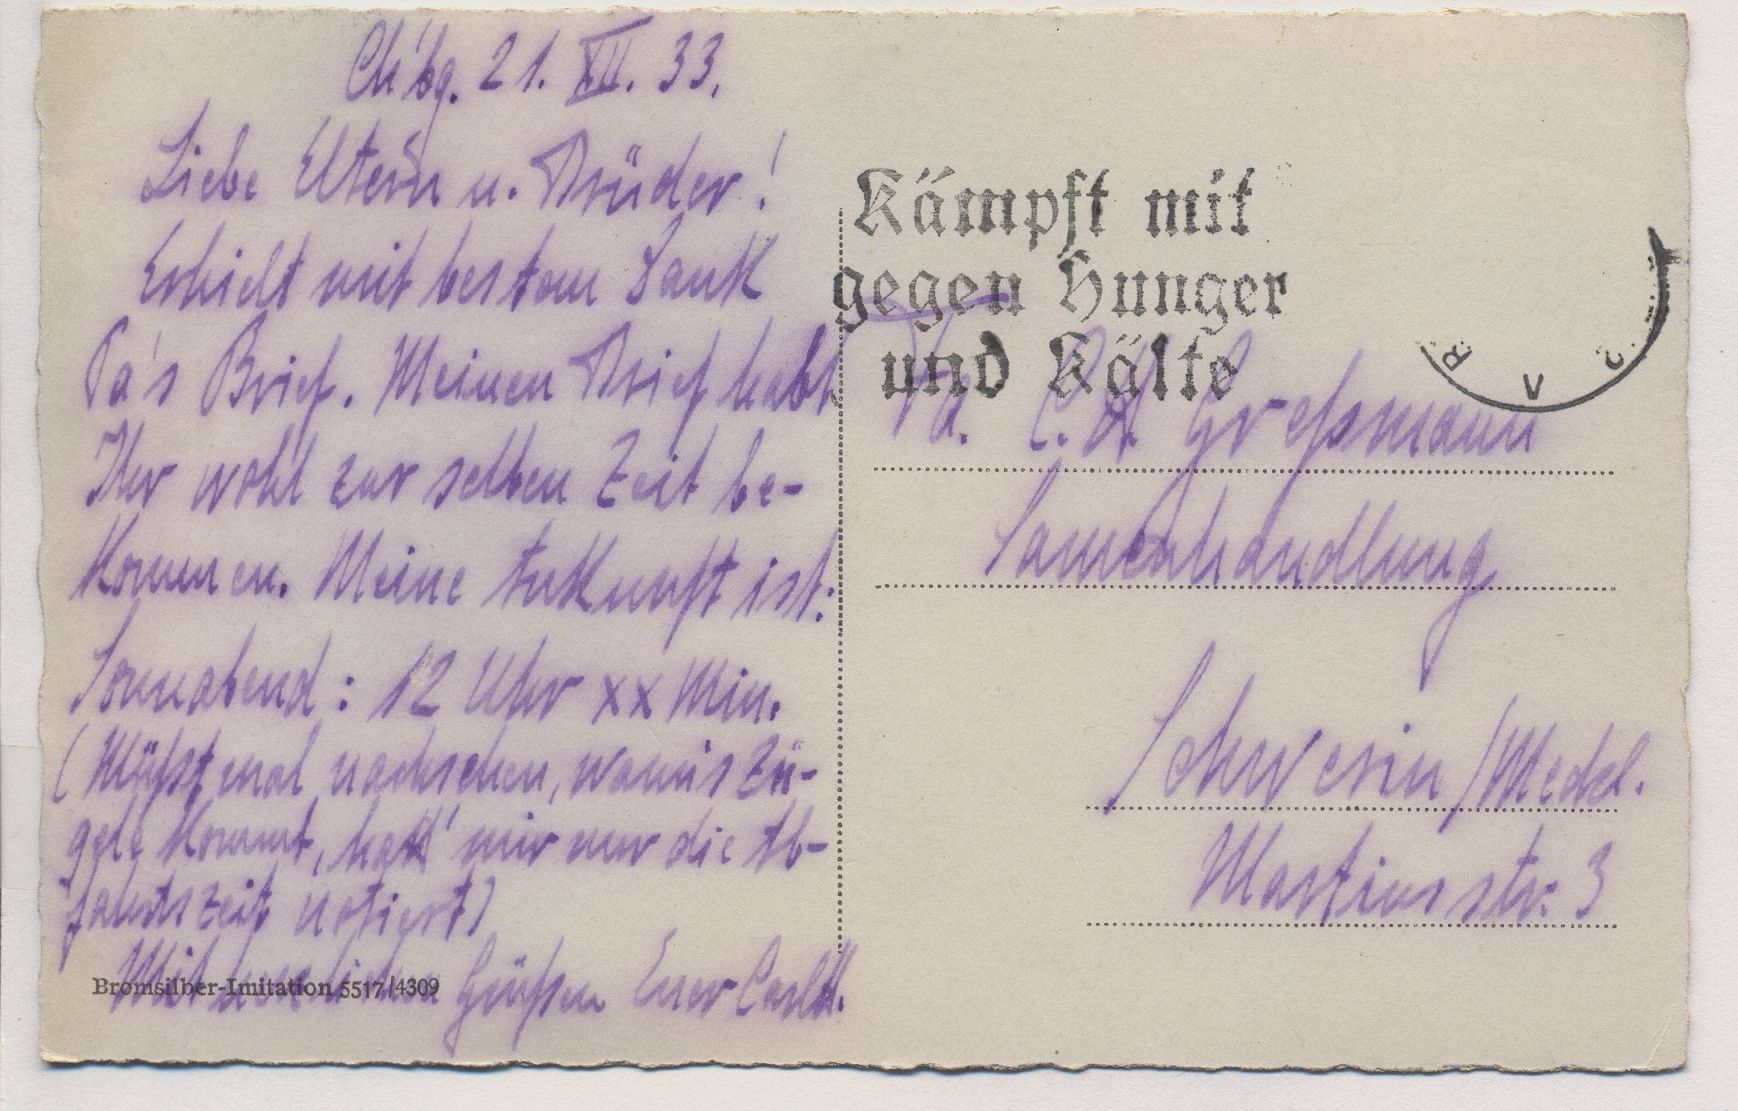 Ch'bg. 21. XII. 33.
Liebe Eltern u. Brüder!
Erhielt mit bestem Dank
Pa's Brief. Meinen Brief habt
Ihr wohl zur selben Zeit be-
kommen. Meine Ankunft ist:
Sonnabend: 12 Uhr xx Min.
(Müßt mal nachsehen, wann's
kommt, hatt' mir nur die Ab-
fahrtszeit notiert)
Mit herzlichen Grüßen Euer
Bromsilber-Imitation 5517/4309
Kämpft mit
gegen Hunger
und Kälte
R V
Fa. C. H. Großmann
Samenhandlung
Schwerin /Meckl.
Martinsstr. 3